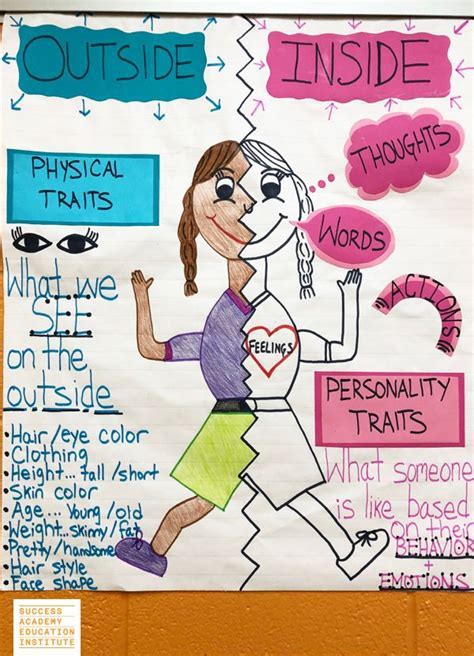 OUTSIDE
INSIDE
PHYSICAL
TRAITS
What we
SEE
on the
outside
• Hair/eye color
• Clothing
• Height... tall/short
• Skin color
• Age.... Young/old
• Weight...skinny/fat
• Pretty/handsome
• Hair style
• Face shape
THOUGHTS
WORDS
ACTIONS
FEELINGS
PERSONALITY
TRAITS
What someone
is like based
on their
BEHAVIOR
+
EMOTIONS
SUCCESS
ACADEMY
EDUCATION
INSTITUTE